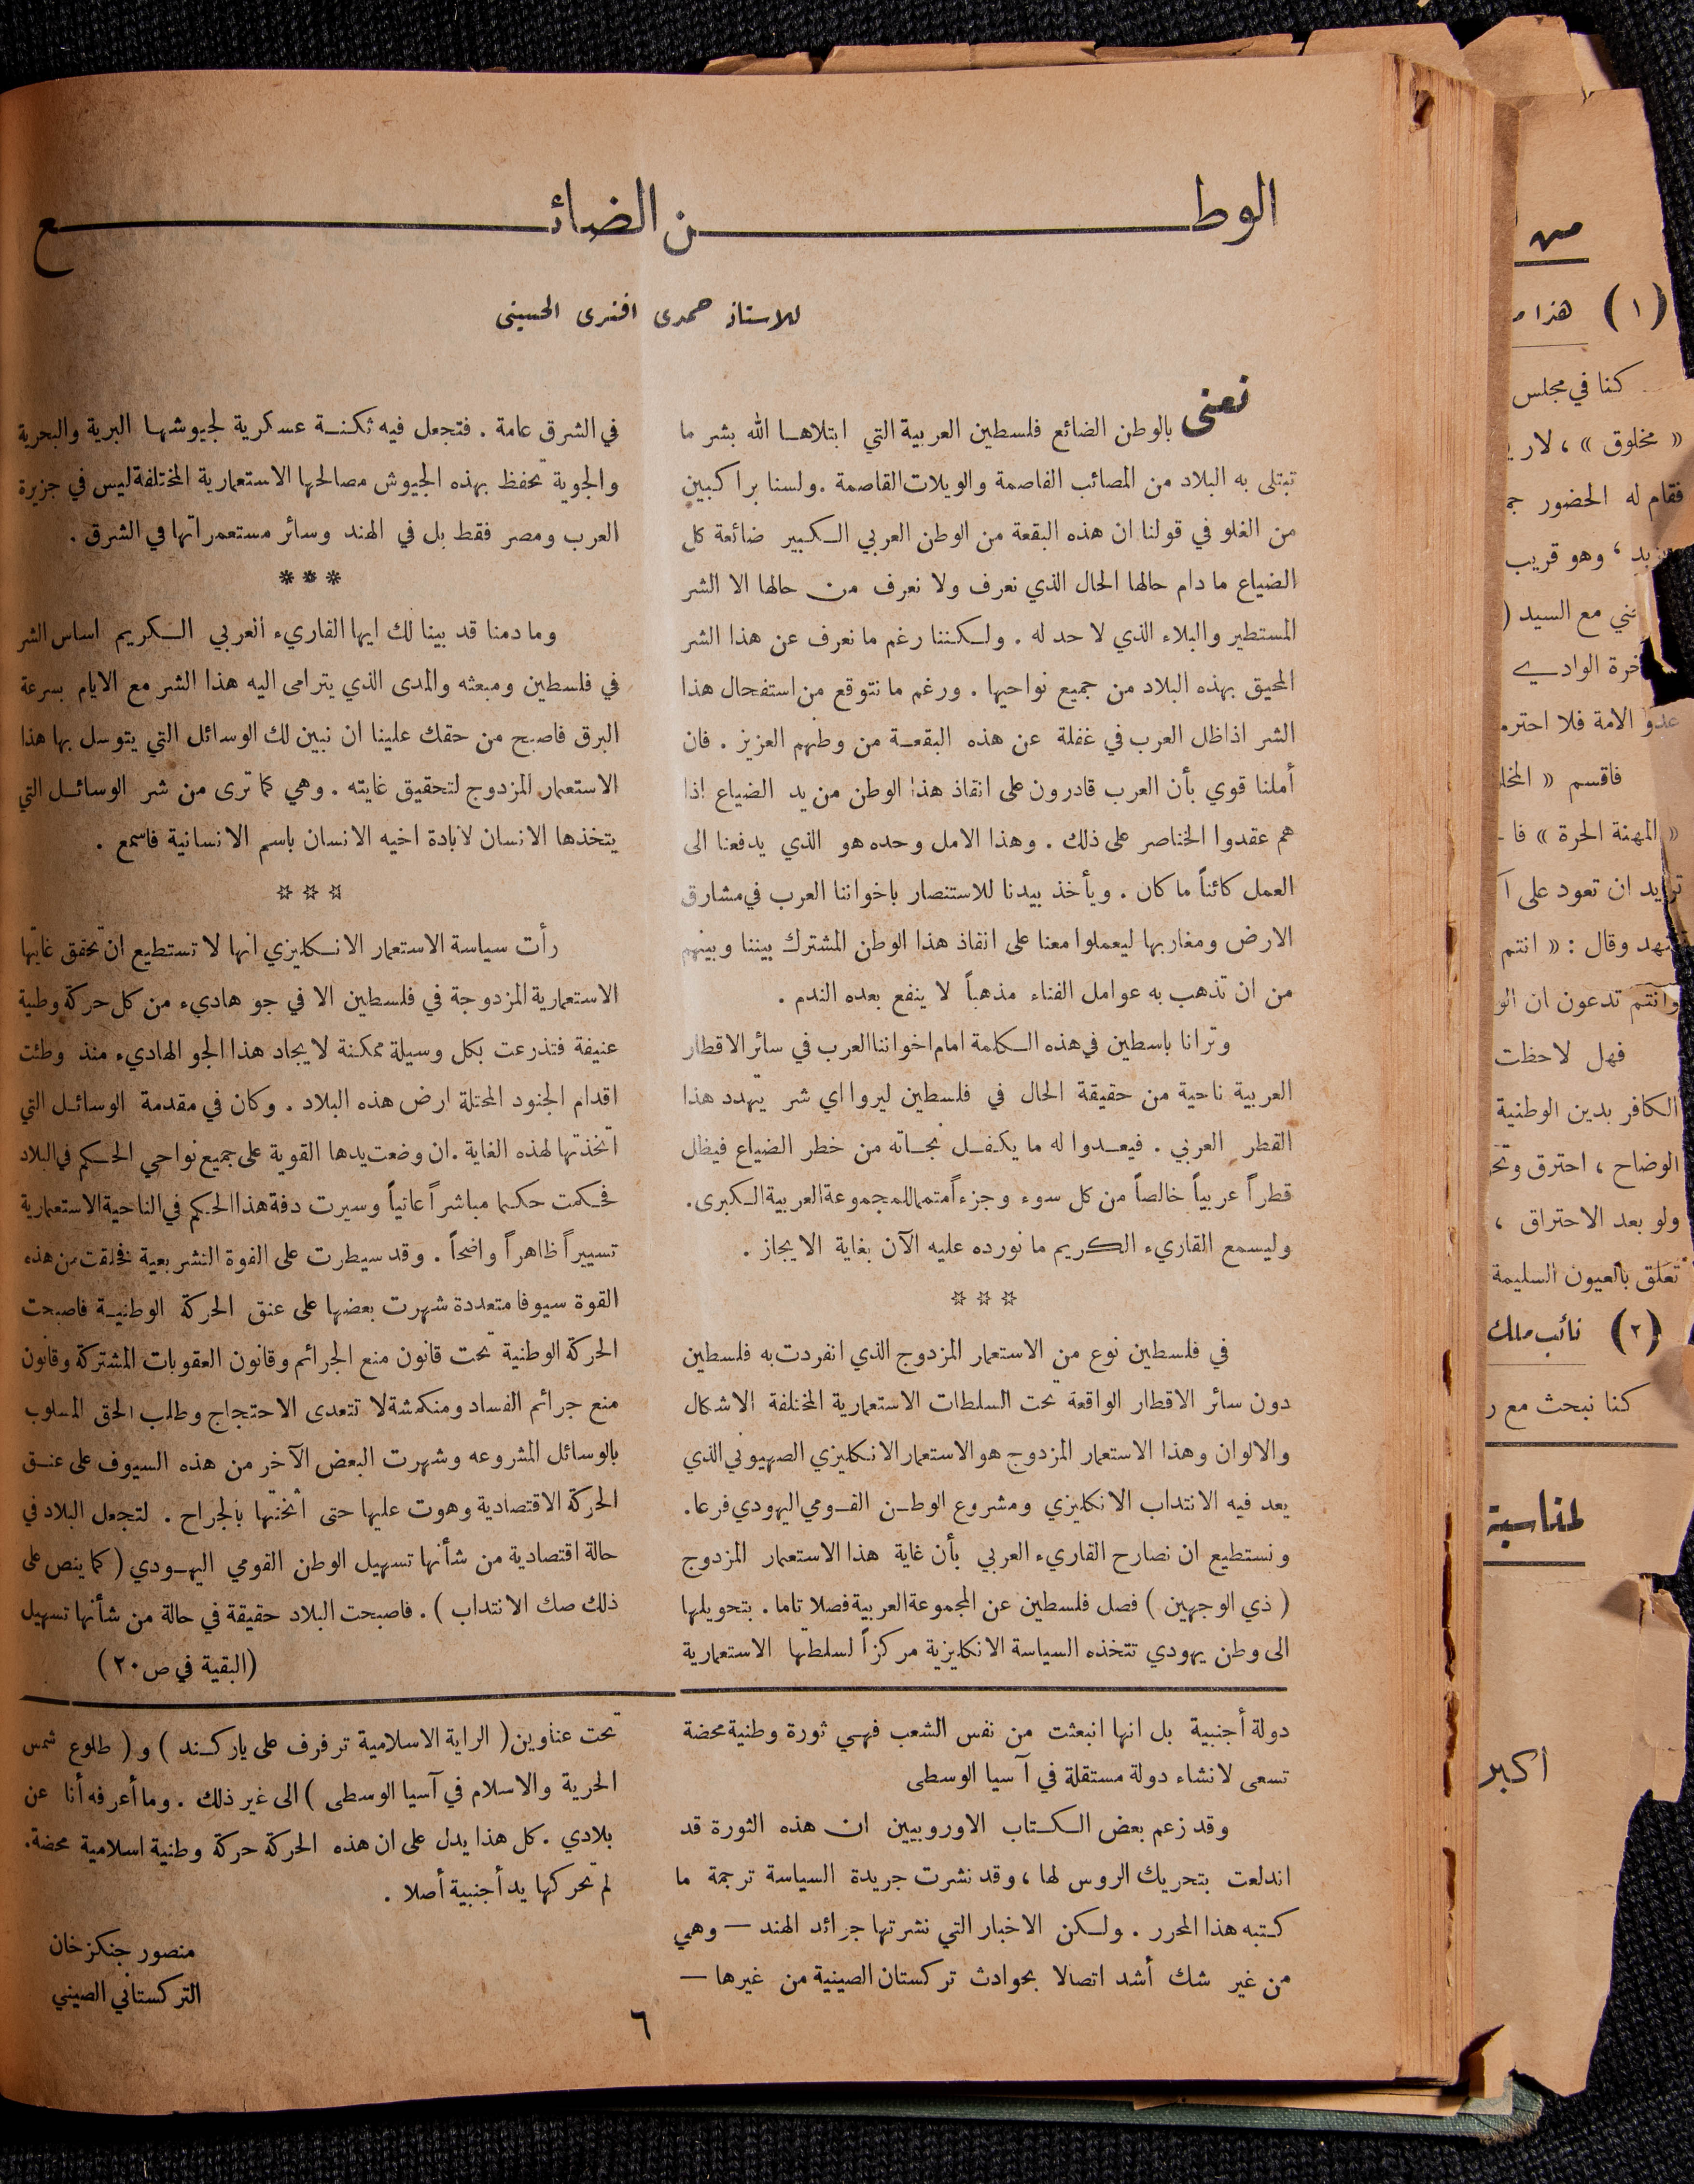 الوطن الضائع
للاستاذ حمدى افندى الحسينى
نعنى بالوطن الضائع فلسطين العربية التي ابتلاها الله بشر ما
تبتلى به البلاد من المصائب القاصمة والويلات القاصمة . ولسنا براكبين
من الغلو في قولنا ان هذه البقعة من الوطن العربي الكبير ضائعة كل
الضياع ما دام حالها الحال الذي نعرف ولا نعرف من حالها الا الشر
المستطير والبلاء الذي لا حد له . ولكننا رغم ما نعرف عن هذا الشر
المحيق بهذه البلاد من جميع نواحيها . ورغم ما نتوقع من استفحال هذا
الشر اذا ظل العرب في غفلة عن هذه البقعة من وطنهم العزيز . فان
أملنا قوي بأن العرب قادرون على انقاذ هذا الوطن من يد الضياع اذا
هم عقدوا الخناصر على ذلك . وهذا الامل وحده هو الذي يدفعنا الى
العمل كائناً ما كان . ويأخذ بيدنا للاستنصار باخواننا العرب في مشارق
الارض ومغاربها ليعملوا معنا على انقاذ هذا الوطن المشترك بيننا وبينهم
من ان تذهب به عوامل الفناء مذهباً لا ينفع بعده الندم .
وترانا باسطين في هذه الكلمة امام اخواننا العرب في سائر الاقطار
العربية ناحية من حقيقة الحال في فلسطين ليروا اي شر يتهدد هذا
القطر العربي . فيعدوا له ما يكفل نجاته من خطر الضياع فيظل
قطراً عربياً خالصاً من كل سوء وجزءاً متمما للمجموعة العربية الكبرى .
وليسمع القاريء الكريم ما نورده عليه الآن بغاية الايجاز .
☆ ☆ ☆
في فلسطين نوع من الاستعمار المزدوج الذي انفردت به فلسطين
دون سائر الاقطار الواقعة تحت السلطات الاستعمارية المختلفة الاشكال
والالوان وهذا الاستعمار المزدوج هو الاستعمار الانكليزي الصهيوني الذي
يعد فيه الانتداب الانكليزي ومشروع الوطن القومي اليهودي فرعا .
ونستطيع ان نصارح القاريء العربي بأن غاية هذا الاستعمار المزدوج
( ذي الوجهين ) فصل فلسطين عن المجموعة العربية فصلا تاما . بتحويلها
الى وطن يهودي تتخذه السياسة الانكليزية مركزاً لسلطتها الاستعمارية
في الشرق عامة . فتجعل فيه ثكنة عسكرية لجيوشها البرية والبحرية
والجوية تحفظ بهذه الجيوش مصالحها الاستعمارية المختلفة ليس في جزيرة
العرب ومصر فقط بل في الهند وسائر مستعمراتها في الشرق .
* * *
وما دمنا قد بينا لك ايها القاريء العربي الكريم اساس الشر
في فلسطين ومبعثه والمدى الذي يترامى اليه هذا الشر مع الايام بسرعة
البرق فاصبح من حقك علينا ان نبين لك الوسائل التي يتوسل بها هذا
الاستعمار المزدوج لتحقيق غايته . وهي كما ترى من شر الوسائل التي
يتخذها الانسان لابادة اخيه الانسان باسم الانسانية فاسمع .
☆ ☆ ☆
رأت سياسة الاستعمار الانكليزي انها لا تستطيع ان تحقق غايتها
الاستعمارية المزدوجة في فلسطين الا في جو هاديء من كل حركة وطنية
عنيفة فتذرعت بكل وسيلة ممكنة لايجاد هذا الجو الهاديء منذ وطئت
اقدام الجنود المحتلة ارض هذه البلاد . وكان في مقدمة الوسائل التي
اتخذتها لهذه الغاية . ان وضعت يدها القوية على جميع نواحي الحكم في البلاد
فحكمت حكما مباشراً عانياً وسيرت دفة هذا الحكم في الناحية الاستعمارية
تسييراً ظاهراً واضحاً . وقد سيطرت على القوة التشريعية فخلقت من هذه
القوة سيوفا متعددة شهرت بعضها على عنق الحركة الوطنية فاصبحت
الحركة الوطنية تحت قانون منع الجرائم وقانون العقوبات المشتركة وقانون
منع جرائم الفساد ومنكمشة لا تتعدى الاحتجاج وطلب الحق المسلوب
بالوسائل المشروعه وشهرت البعض الآخر من هذه السيوف على عنق
الحركة الاقتصادية وهوت عليها حتى أثخنتها بالجراح . لتجعل البلاد في
حالة اقتصادية من شأنها تسهيل الوطن القومي اليهودي ( كما ينص على
ذلك صك الانتداب ) . فاصبحت البلاد حقيقة في حالة من شأنها تسهيل
(البقية في ص ٢٠)
دولة أجنبية بل انها انبعثت من نفس الشعب فهي ثورة وطنية محضة
تسعى لانشاء دولة مستقلة في آسيا الوسطى
وقد زعم بعض الكتاب الاوروبيين ان هذه الثورة قد
اندلعت بتحريك الروس لها ، وقد نشرت جريدة السياسة ترجمة ما
كتبه هذا المحرر . ولكن الاخبار التي نشرتها جرائد الهند — وهي
من غير شك أشد اتصالا بحوادث تركستان الصينية من غيرها —
تحت عناوين ( الراية الاسلامية ترفرف على ياركند ) و ( طلوع شمس
الحرية والاسلام في آسيا الوسطى ) الى غير ذلك . وما أعرفه أنا عن
بلادي . كل هذا يدل على ان هذه الحركة حركة وطنية اسلامية محضة .
لم تحركها يد أجنبية أصلا .
منصور جنكز خان
التركستاني الصيني
٦
من
(١) هذا
كنا في مجلس
« مخلوق » ،
فقام له الحضور
، وهو قريب
مع السيد (
الوادي
عدو الامة فلا
فاقسم «
« المهنة الحرة »
ان تعود على
وقال : « انتم
وانتم تدعون ان
فهل لاحظت
الكافر بدين الوطنية
الوضاح ، احترق
ولو بعد الاحتراق ،
تعلق بالعيون السليمة
(٢) نائب ملك
كنا نبحث مع
لمناسبة
اكبر